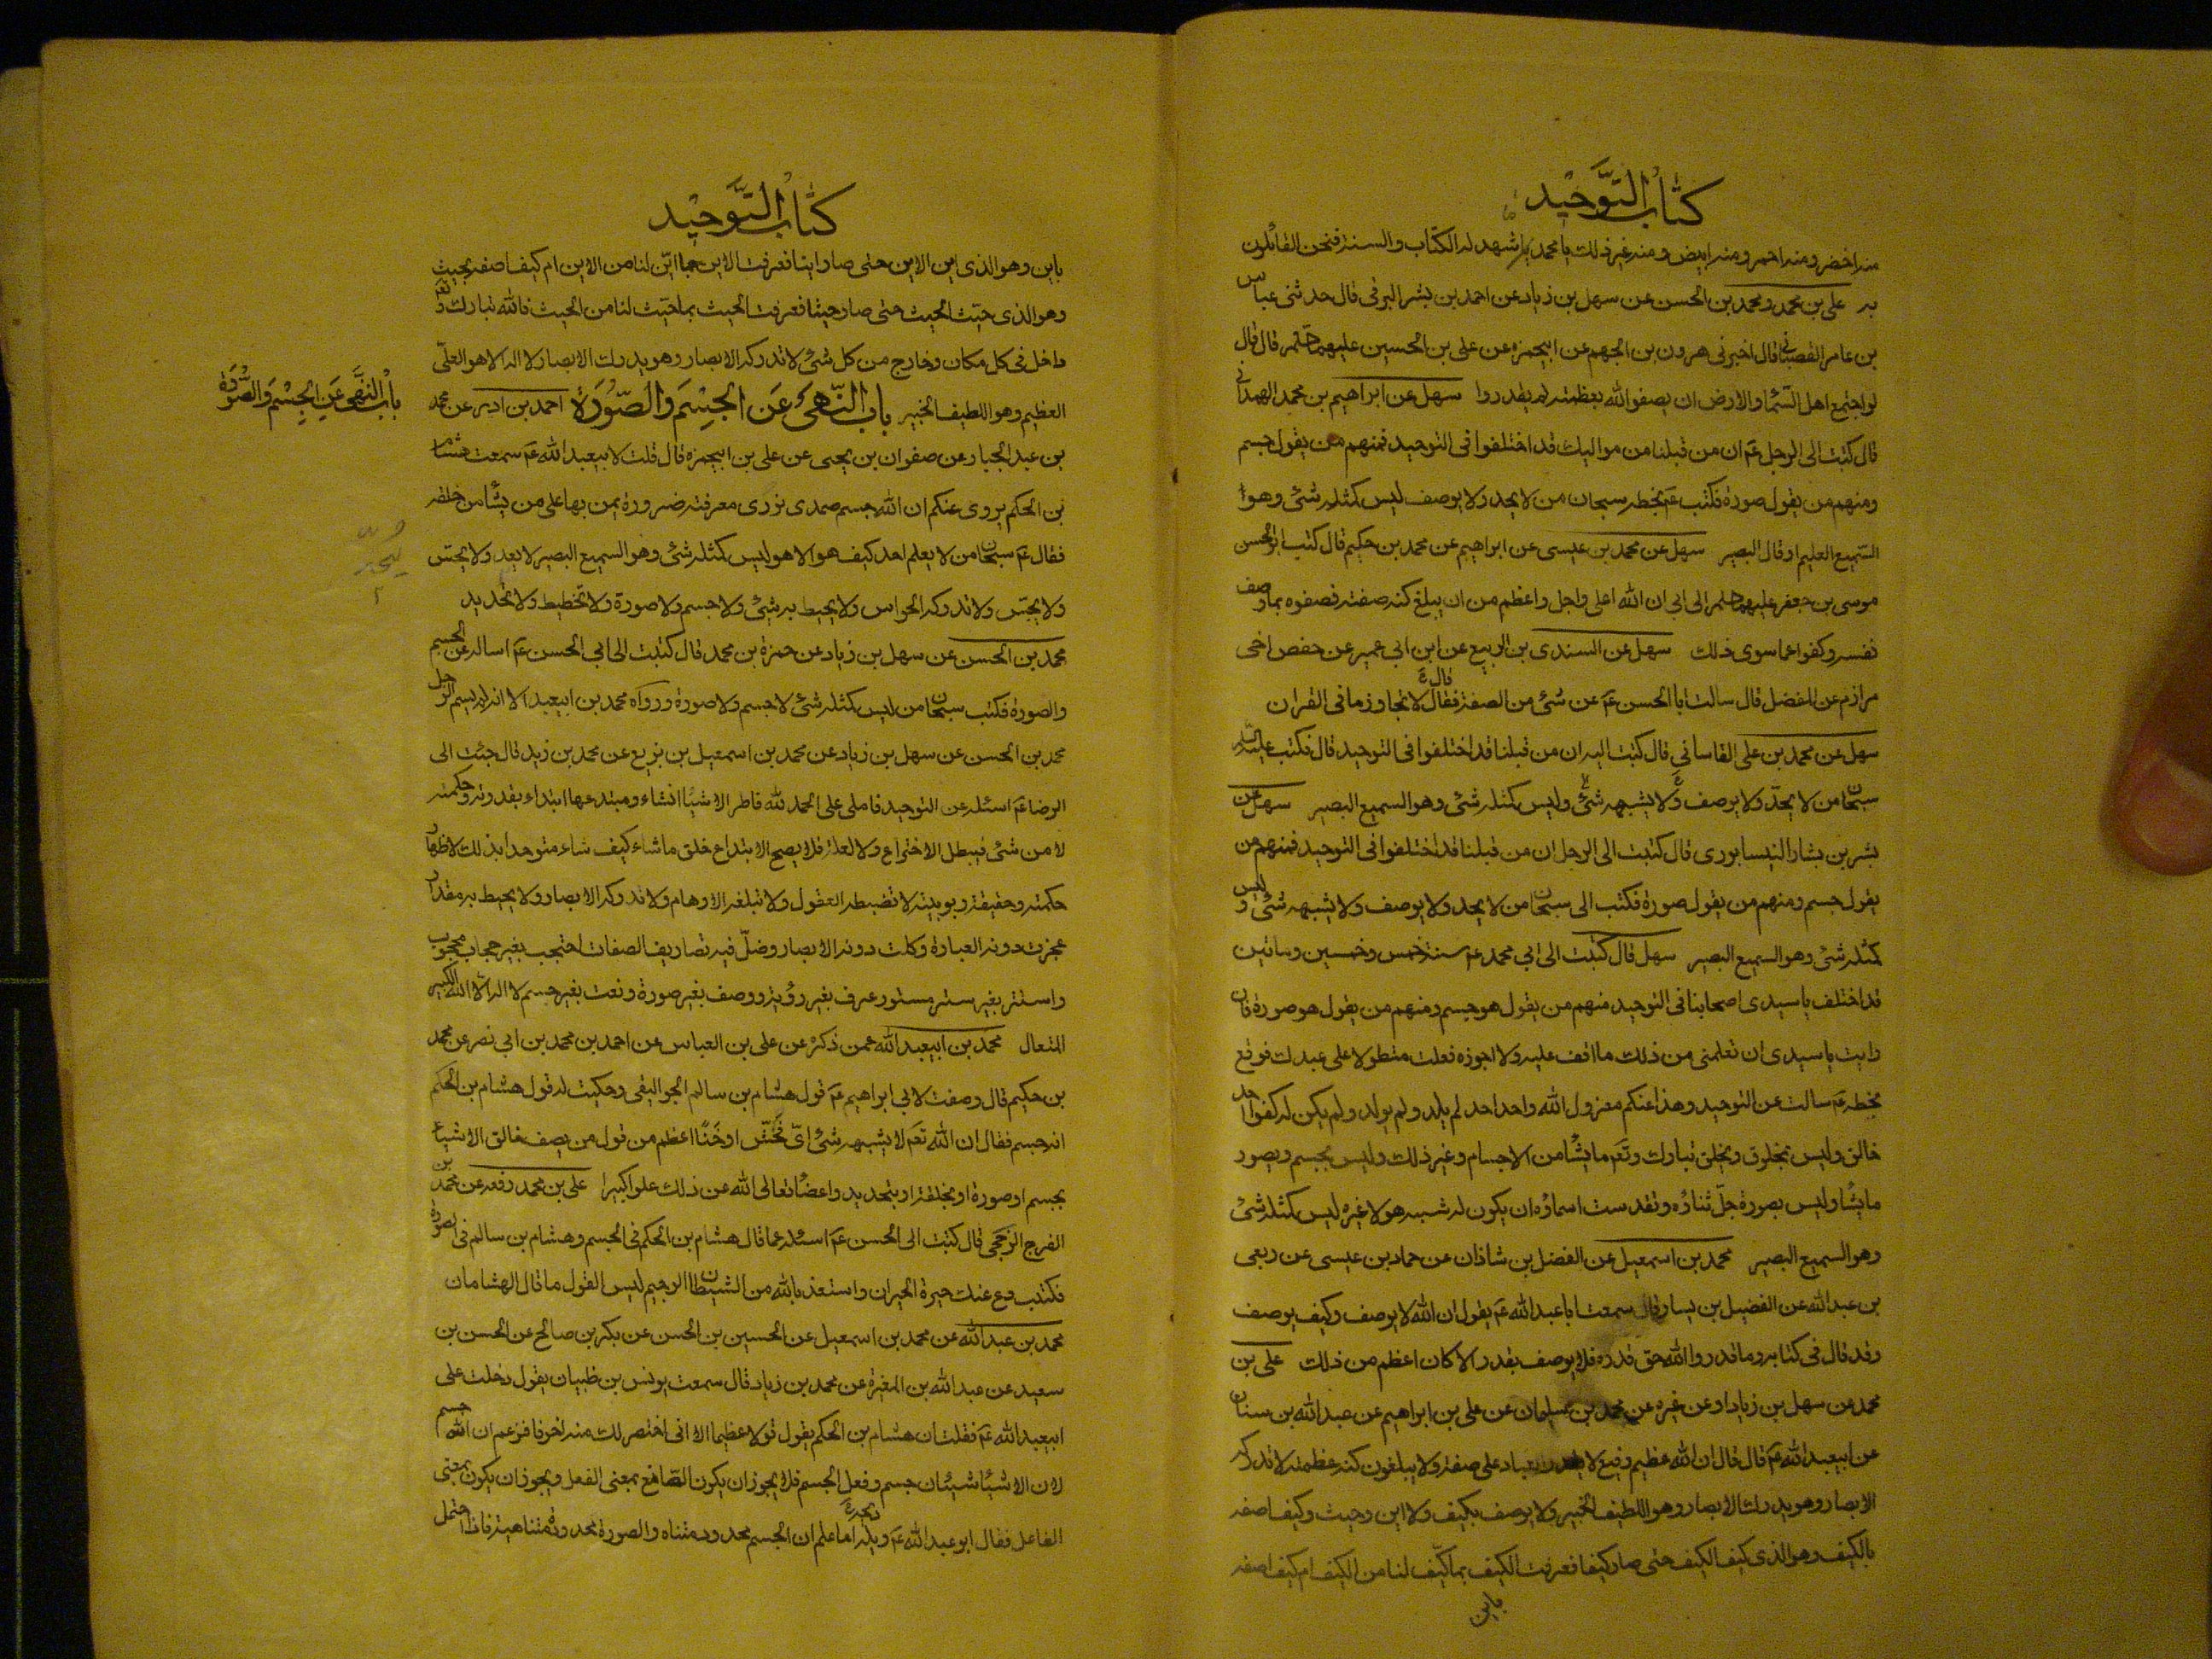 كتاب التَّوحيد
منه اخضر ومنه احمر ومنه ابيض ومنه غير ذلك يا محمد ما شهد له الكتاب والسنة فنحن القائلون
به علي بن محمد ومحمد بن الحسن عن سهل بن زياد عن احمد بن بشر البرقى قال حدثنى عباس
بن عامر القصبانى قال اخبرنى هرون بن الجهم عن ابيحمزه عن علي بن الحسين عليهما قال قال
لو اجتمع اهل السماء والارض ان يصفوا الله بعظمته لم يقدروا سهل عن ابراهيم بن محمد الهمدانى
قال كتبت الى الرجل عم ان من قبلنا من مواليك قد اختلفوا فى التوحيد فمنهم من يقول جسم
ومنهم من يقول صورة فكتب عم بخطه سبحان من لا يحد ولا يوصف ليس كمثله شئ وهو
السميع العليم او قال البصير سهل عن محمد بن عيسى عن ابراهيم عن محمد بن حكيم قال كتب ابو الحسن
موسى بن جعفر عليهما الى ابى ان الله اعلى واجل واعظم من ان يبلغ كنه صفته فصفوه بما وصف
نفسه وكفوا عما سوى ذلك سهل عن السندى بن الربيع عن ابن ابى عمير عن حفص اخى
مرازم عن المفضل قال سالت ابا الحسن عم عن شئ من الصفة فقال لا تجاوز ما فى القران
سهل عن محمد بن على القاسانى قال كتبت اليه ان من قبلنا قد اختلفوا فى التوحيد قال فكتب عليه
سبحان من لا يحدّ ولا يوصف ولا يشبهه شئ وليس كمثله شئ وهو السميع البصير سهل عن
بشر بن بشار النيسابورى قال كتبت الى الرجل ان من قبلنا قد اختلفوا فى التوحيد فمنهم من
يقول جسم ومنهم من يقول صورة فكتب الى سبحان من لا يحد ولا يوصف ولا يشبهه شئ وليس
كمثله شئ وهو السميع البصير سهل قال كتبت الى ابى محمد عم سنة خمس وخمسين وماتين
قد اختلف يا سيدى اصحابنا فى التوحيد منهم من يقول هو جسم ومنهم من يقول هو صورة فان
رايت يا سيدى ان تعلمنى من ذلك ما اقف عليه ولا اجوزه فعلت متطولا على عبدك فوقع
بخطه عم سالت عن التوحيد وهذا عنكم معزول الله واحد احد لم يلد ولم يولد ولم يكن له كفوا احد
خالق وليس بمخلوق ويخلق تبارك وتعم ما يشا من الاجسام وغير ذلك وليس بجسم ويصور
ما يشا وليس بصورة جلّ ثناؤه وتقدست اسماؤه ان يكون له شبه هو لا غيره ليس كمثله شئ
وهو السميع البصير محمد بن اسمعيل عن الفضل بن شاذان عن حماد بن عيسى عن ربعى
بن عبد الله عن الفضيل بن يسار قال سمعت ابا عبد الله عم يقول ان الله لا يوصف وكيف يوصف
وقد قال فى كتابه وما قدروا الله حق قدره فلا يوصف بقدر الا كان اعظم من ذلك علي بن
محمد عن سهل بن زياد او عن غيره عن محمد بن سليمان عن علي بن ابراهيم عن عبد الله بن سنان
عن ابيعبد الله عم قال قال ان الله عظيم رفيع لا يقدر العباد على صفته ولا يبلغون كنه عظمته لا تدركه
الابصار وهو يدرك الابصار وهو اللطيف الخبير ولا يوصف بكيف ولا اين وحيث وكيف اصفه
بالكيف وهو الذى كيف الكيف حتى صار كيفا فعرفت الكيف بما كيّف لنا من الكيف ام كيف اصفه
باين
كتاب التَّوحيد
باين وهو الذى اين الاين حتى صار اينا فعرفت الاين بما ايّن لنا من الاين ام كيف اصفه بحيث
وهو الذى حيّث الحيث حتى صار حيثا فعرفت الحيث بما حيّث لنا من الحيث فالله تبارك وتعم
داخل فى كل مكان وخارج من كل شئ لا تدركه الابصار وهو يدرك الابصار لا اله الا هو العلىّ
العظيم وهو اللطيف الخبير باب النَّهى عَنِ الجِسْمِ وَالصّوُرَة احمد بن ادريس عن محمد
باب النَّهى عَنِ الجِسْم وَالصُّورَة
بن عبد الجبار عن صفوان بن يحيى عن علي بن ابيحمزه قال قلت لابيعبد الله عم سمعت هشام
بن الحكم يروى عنكم ان الله جسم صمدى نورى معرفته ضرورة يمن بها على من يشا من خلقه
فقال عم سبحان من لا يعلم احد كيف هو الا هو ليس كمثله شئ وهو السميع البصير لا يعد ولا يحس
ولا يجس ولا تدركه الحواس ولا يحيط به شئ ولا جسم ولا صورة ولا تخطيط ولا تحديد
محمد بن الحسن عن سهل بن زياد عن حمزة بن محمد قال كتبت الى ابى الحسن عم اساله عن الجسم
والصورة فكتب سبحان من ليس كمثله شئ لا جسم ولا صورة ورواه محمد بن ابيعبد الا انه لم يسم الرجل
محمد بن الحسن عن سهل بن زياد عن محمد بن اسمعيل بن بزيع عن محمد بن زيد قال جئت الى
الرضا عم اسئله عن التوحيد فاملى على الحمد لله فاطر الاشيا انشاء ومبتدعها ابتداء بقدرته وحكمته
لا من شئ فيبطل الاختراع ولا لعلة فلا يصح الابتداع خلق ما شاء كيف شاء متوحدا بذلك لاظهار
حكمته وحقيقة ربوبيته لا تضبطه العقول ولا تبلغه الاوهام ولا تدركه الابصار ولا يحيط به مقدار
عجزت دونه العبارة وكلت دونه الابصار وضلّ فيه تصاريف الصفات احتجب بغير حجاب محجوب
واستتر بغير ستر مستور عرف بغير رؤية ووصف بغير صورة ونعت بغير جسم لا اله الا الله الكبير
المتعال محمد بن ابيعبد الله عمن ذكره عن علي بن العباس عن احمد بن محمد بن ابى نصر عن محمد
بن حكيم قال وصفت لابى ابراهيم عم قول هشام بن سالم الجواليقى وحكيت له قول هشام بن الحكم
انه جسم فقال ان الله تعم لا يشبهه شئ اىّ فحش او خنًا اعظم من قول من يصف خالق الاشياء
بجسم او صورة او بخلقة او بتحديد واعضا تعالى الله عن ذلك علوا كبيرا علي بن محمد رفعه عن محمد بن
الفرج الرخجى قال كتبت الى الحسن عم اسئله عما قال هشام بن الحكم فى الجسم وهشام بن سالم فى الصورة
فكتب دع عنك حيرة الحيران واستعذ بالله من الشيطان الرجيم ليس القول ما قال الهشامان
محمد بن عبد الله عن محمد بن اسمعيل عن الحسين بن الحسن عن بكر بن صالح عن الحسن بن
سعيد عن عبد الله بن المغيرة عن محمد بن زياد قال سمعت يونس بن ظبيان يقول دخلت على
ابيعبد الله عم فقلت ان هشام بن الحكم يقول قولا عظيما الا انى اختصر لك منه احرفا فزعم ان الله جسم
لان الاشيا شيئان جسم وفعل الجسم فلا يجوز ان يكون الصّانع بمعنى الفعل ويجوز ان يكون بمعنى
الفاعل فقال ابو عبد الله عم ويله اما علم ان الجسم محدود متناه والصورة محدودة متناهية فاذا احتمل